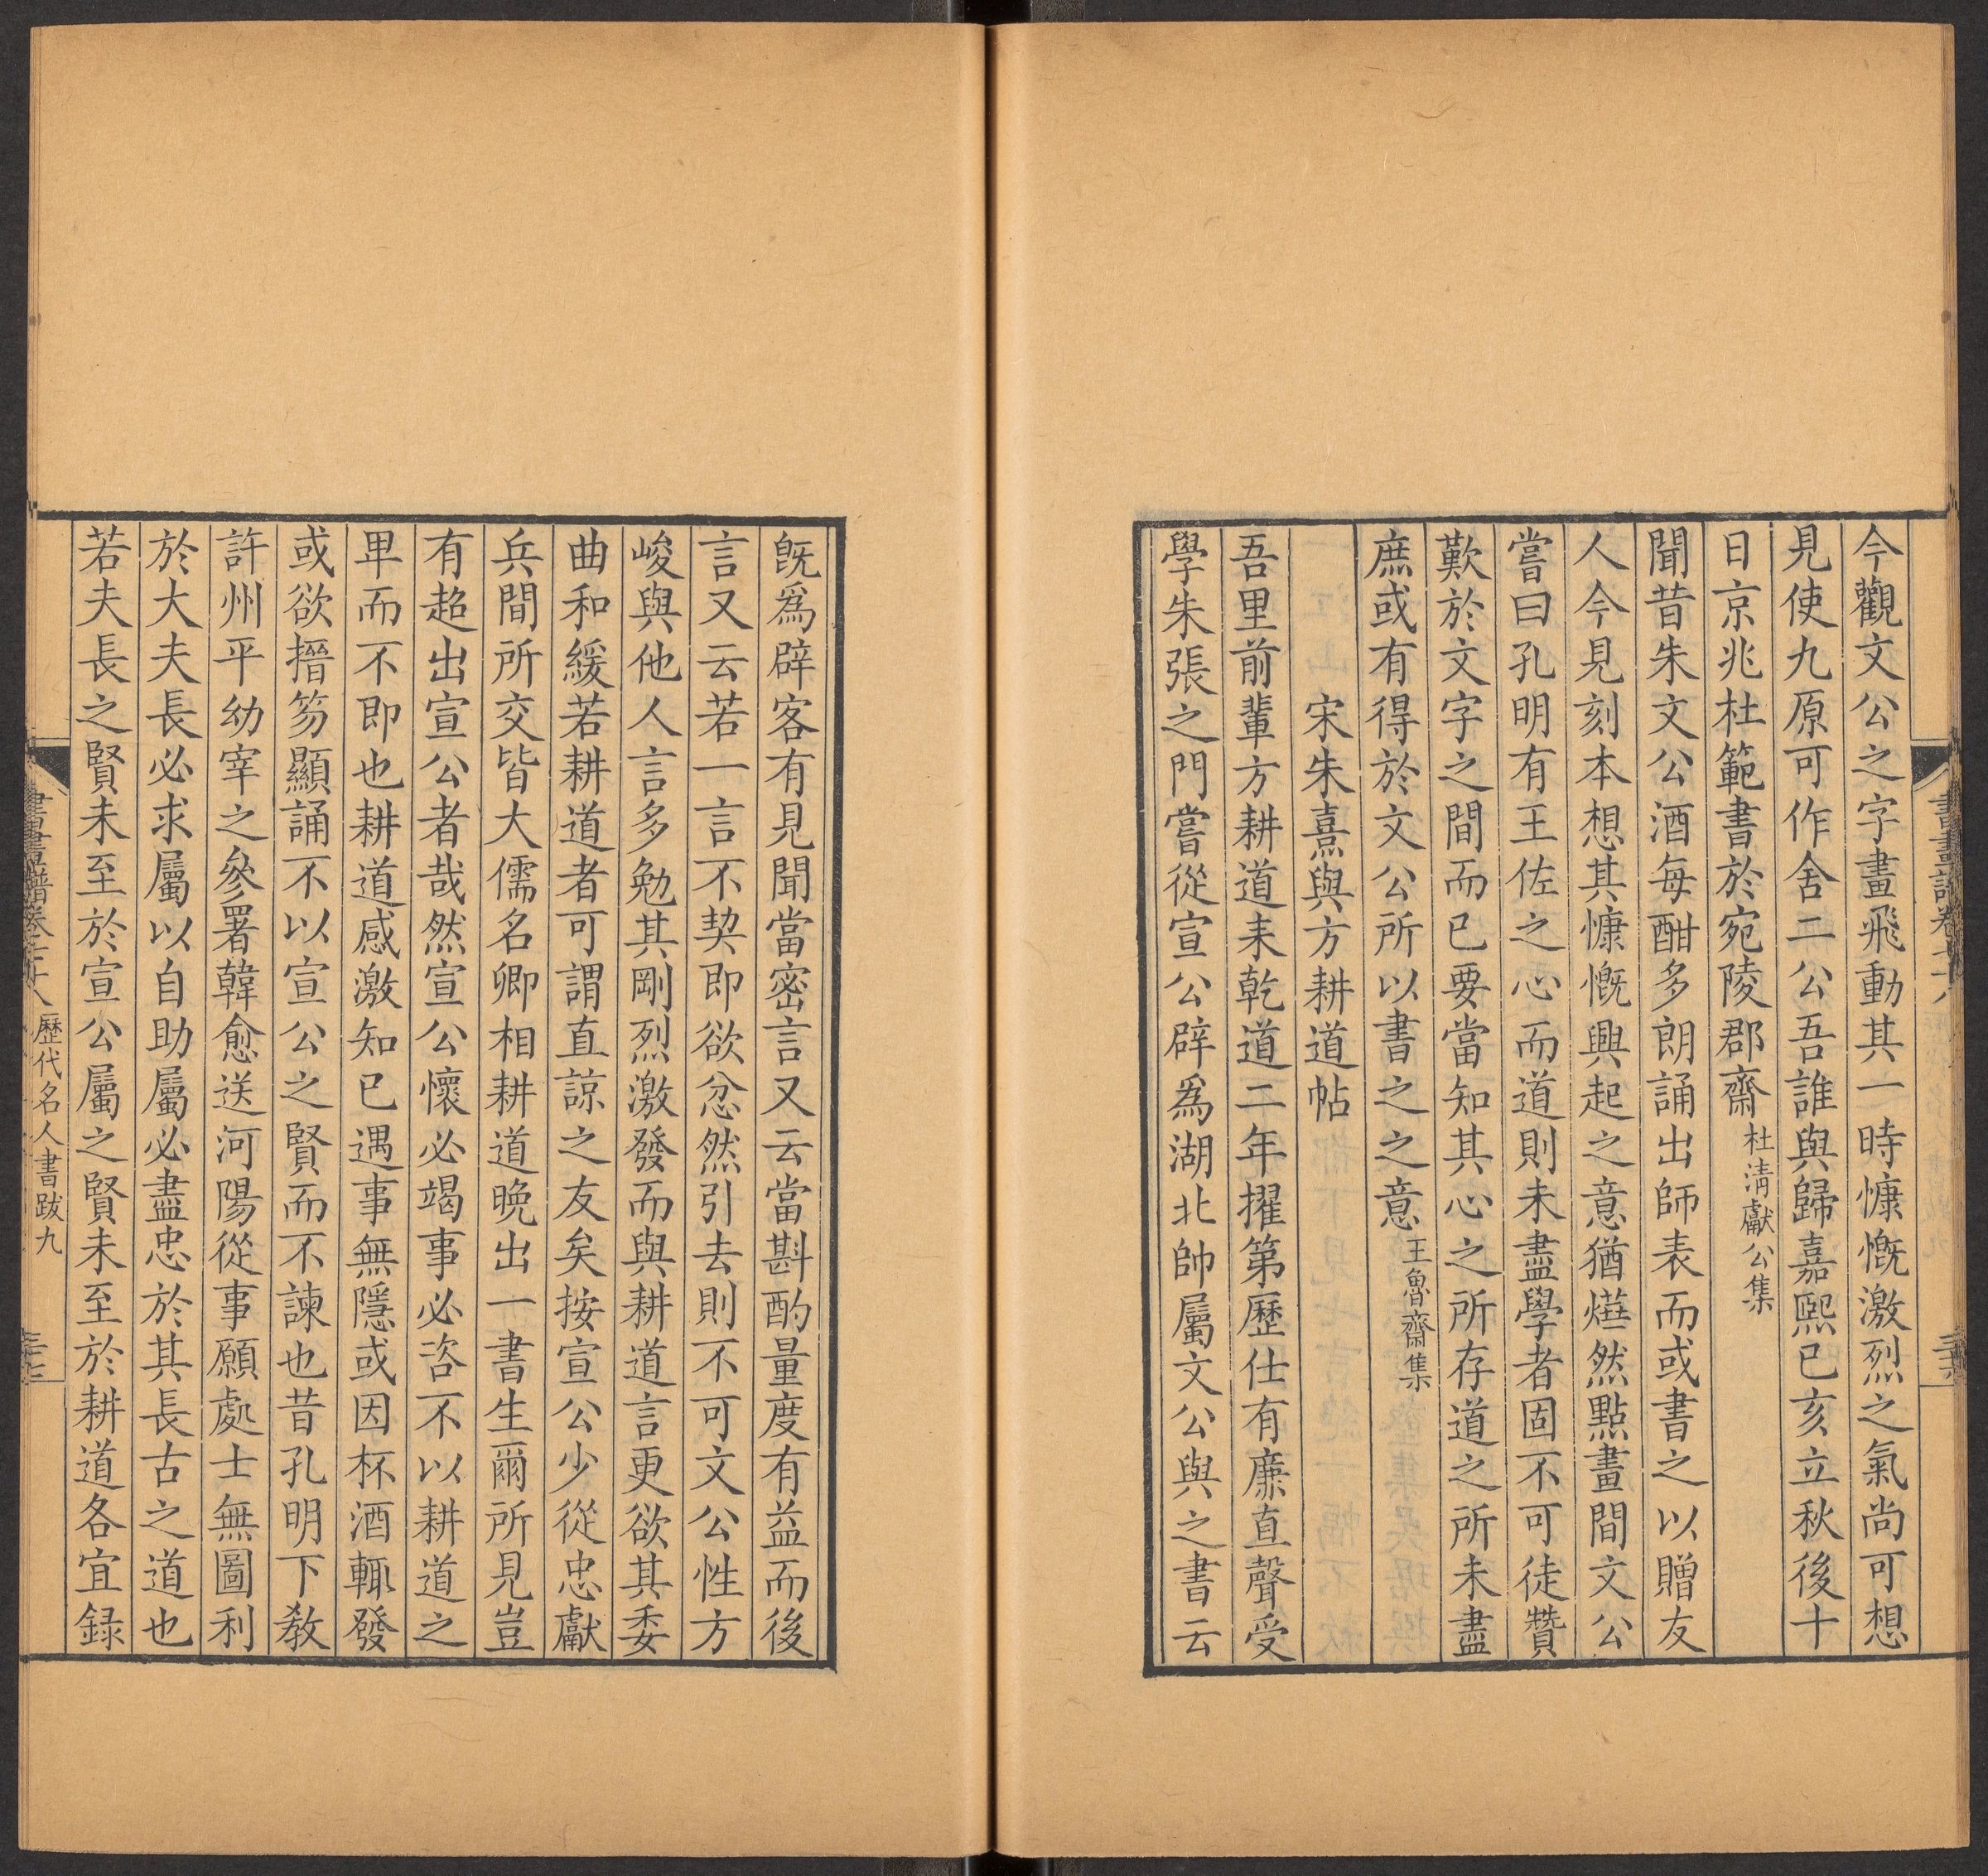 今觀文公之字畫飛動其一時慷慨激烈之氣尚可想
見使九原可作舍二公吾誰與歸嘉熙已亥立秋後十
日京兆杜範書於宛陵郡齋杜清獻公集
聞昔朱文公酒每酣多朗誦出師表而或書之以贈友
人今見刻本想其慷慨興起之意猶燁然點畫間文公
嘗曰孔明有王佐之心而道則未盡學者固不可徒贊
歎於文字之間而已要當知其心之所存道之所未盡
庶或有得於文公所以書之之意王魯齋集
宋朱熹與方耕道帖
吾里前輩方耕道耒乾道二年擢第歷仕有亷直聲受
學朱張之門嘗從宣公辟爲湖北帥屬文公與之書云
既爲辟客有見聞當密言又云當斟酌量度有益而後
言又云若一言不契即欲忿然引去則不可文公性方
峻與他人言多勉其剛烈激發而與耕道言更欲其委
曲和緩若耕道者可謂直諒之友矣按宣公少從忠獻
兵間所交皆大儒名卿相耕道晩出一書生爾所見豈
有超出宣公者哉然宣公懷必竭事必咨不以耕道之
卑而不即也耕道感激知已遇事無隱或因杯酒輒發
或欲搢笏顯誦不以宣公之賢而不諫也昔孔明下教
許州平幼宰之參署韓愈送河陽從事願處士無圖利
於大夫長必求屬以自助屬必盡忠於其長古之道也
若夫長之賢未至於宣公屬之賢未至於耕道各宜録
書畫譜卷七十八 歷代名人書跋九